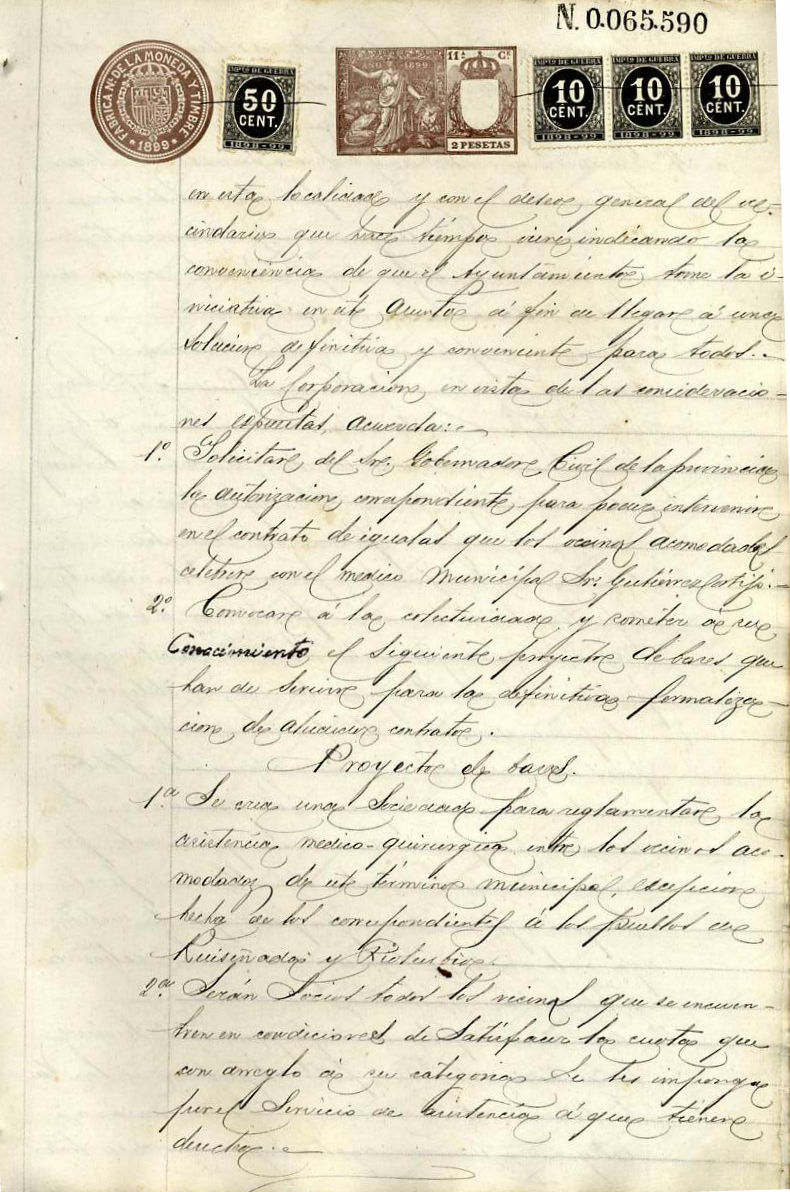 N. 0.065.590
FABRICA Nal. DE LA MONEDA Y TIMBRE
* 1899 *
IMPto DE GUERRA
50
CENT.
1898-99
AÑO 1899
11ª Cª
2 PESETAS
IMPto DE GUERRA
10
CENT.
1898-99
IMPto DE GUERRA
10
CENT.
1898-99
IMPto DE GUERRA
10
CENT.
1898-99
en esta localidad y con el deseo general del ve-
cindario que hace tiempo viene indicando la
conveniencia de que el Ayuntamiento tome la i-
niciativa en este asunto á fin de llegar á una
solucion definitiva y conveniente para todos.-
La Corporacion en vista de las consideracio-
nes espuestas, acuerda:-
1º Solicitar del Sr. Gobernador Civil de la provincia
la autorizacion correspondiente para poder intervenir
en el contrato de igualas que los vecinos acomodados
celebren con el medico municipal Sr. Gutiérrez Cortijo.-
2º Convocar á la colectividad y someter á su
Conocimiento el siguiente proyecto de bases que
han de servir para la definitiva formaliza-
cion de aludido contrato.
Proyecto de bases.
1ª Se crea una Sociedad para reglamentar la
asistencia medico-quirurgica entre los vecinos aco-
modados de este término municipal, escepcion
hecha de los correspondientes á los pueblos de
Ruiseñada y Rioturbio.
2ª Serán Socios todos los vecinos que se encuen-
tren en condiciones de Satisfacer la cuota que
con arreglo á su categoria se les imponga
por el Servicio de asistencia á que tienen
derecho.-